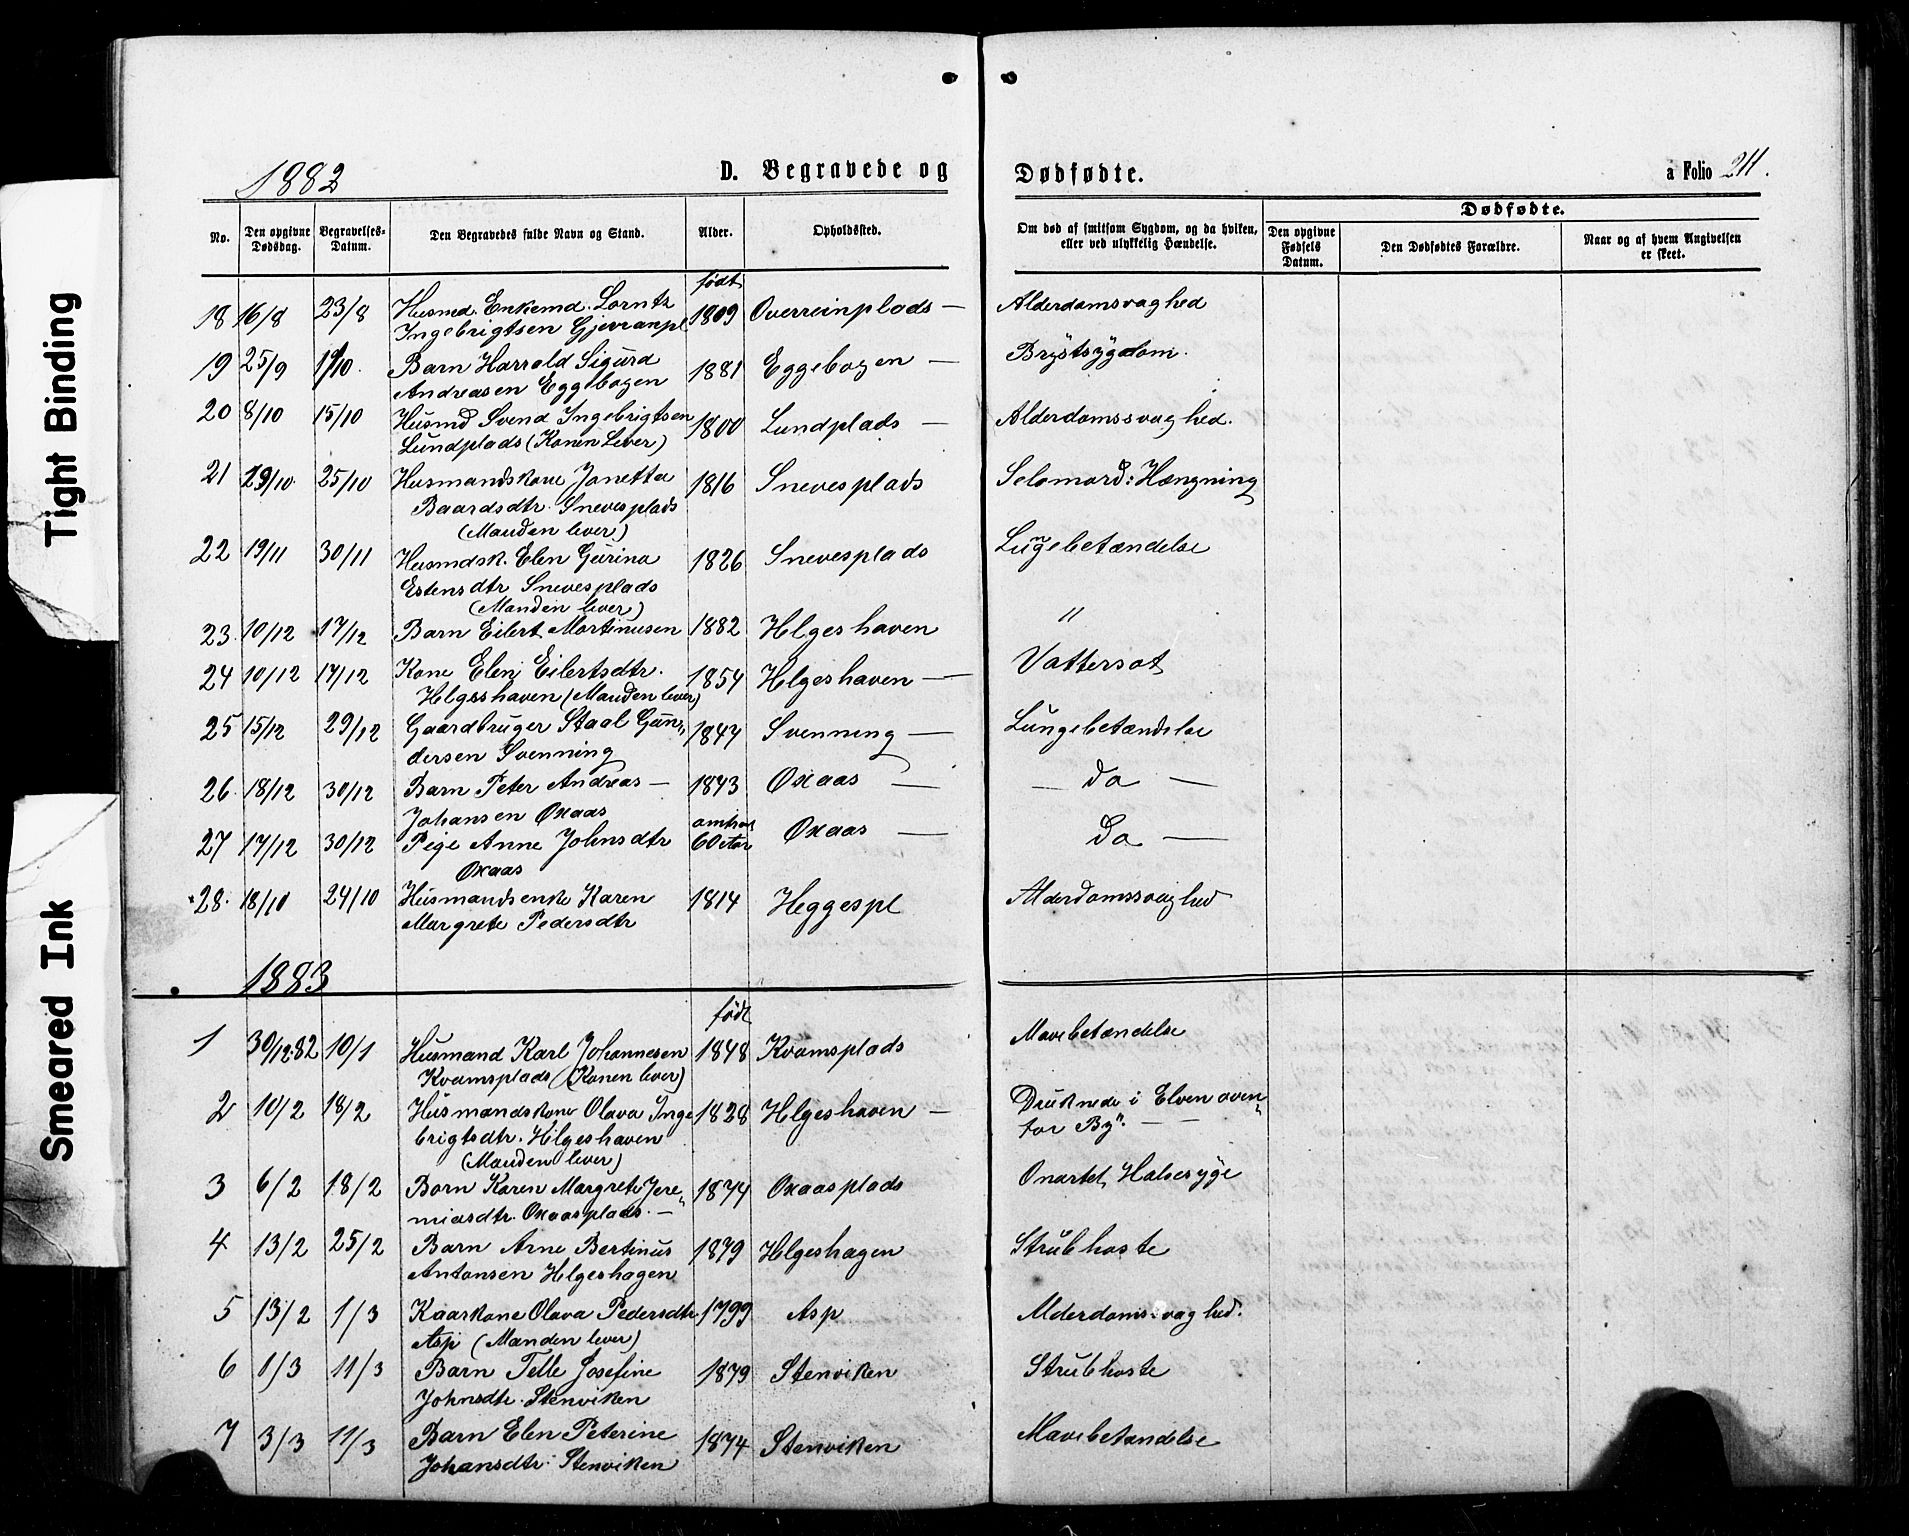 Tight Binding
Smeared Ink
1882
D. Begravede og Dødfødte.
a Folio 211.
No. Den opgivne Dødsdag. Begravelses-Datum. Den Begravedes fulde Navn og Stand. Alder. Opholdssted. Om død af smitsom Sygdom, og da hvilken, eller ved ulykkelig Hændelse. Dødfødte.
Den opgivne Fødsels Datum. Den Dødfødtes Forældre. Naar og af hvem Angivelsen er skeet.
født
18 16/8 23/8 Husmd. Enkemd. Lorntz 1809 Overreinplads — Alderdomsvaghed
Ingebrigtsen Gjevranpl
19 25/9 1/10. Barn Harrald Sigurd 1881 Eggebogen — Brystsygdom.
Andreasen Eggebogen
20 8/10 15/10 Husmd Svend Ingebrigtsen 1800 Lundplads — Alderdomssvaghed.
Lundplads (Konen Lever)
21 19/10. 25/10 Husmandskone Jonetta 1816 Snevesplads Selvmord: Hængning
Baardsdtr. Snevesplads
(Manden lever)
22 19/11 30/11 Husmdsk. Elen Gurina 1826 Snevesplads Lungebetændelse
Estensdtr Snevesplads
(Manden lever)
23. 10/12 17/12 Barn Eilert Martinusen 1882 Helgeshaven "
24 10/12 17/12 Kone Elen Eilertsdtr. 1854 Helgeshaven — Vattersot
Helgeshaven (Manden lever)
25 15/12 29/12 Gaardbruger Staal Gun- 1847 Svenning — Lungebetændelse
dersen Svenning
26. 18/12 30/12 Barn Peter Andreas — 1843 Oxaas — — do —
Johansen Oxaas
27 17/12 30/12 Pige Anne Johnsdtr omtrent 60 Aar Oxaas — Do —
Oxaas
28. 18/10 24/10 Husmandsenke Karen 1814 Heggespl Alderdomssvaghed
Margrete Pedersdtr
1883
født
1 30/12.82 10/1 Husmand Karl Johannesen 1848 Kvamsplads Mavebetændelse
Kvamsplads (Konen lever)
2 10/2 18/2 Husmandskone Olava Inge 1828 Helgeshaven — Druknede i Elven oven-
brigtsdtr. Helgeshaven for By". — —
(Manden lever)
3 6/2 18/2 Barn Karen Margrete Jere- 1874 Oxaasplads Onartet Halssyge
miasdtr. Oxaasplads. —
4 13/2 25/2 Barn Arne Bertinus 1879 Helgeshagen Strubhoste
Antonsen Helgeshagen
5 13/2 1/3 Kaarkone Olava Pedersdtr 1799 Asp Alderdomssvaghed.
Asp (Manden lever)
6 1/3 11/3 Barn Telle Josefine 1879 Stenviken Strubhoste
Johnsdtr. Stenviken
7 3/3 11/3 Barn Elen Peterine 1874 Stenviken Mavebetændelse
Johansdtr. Stenviken